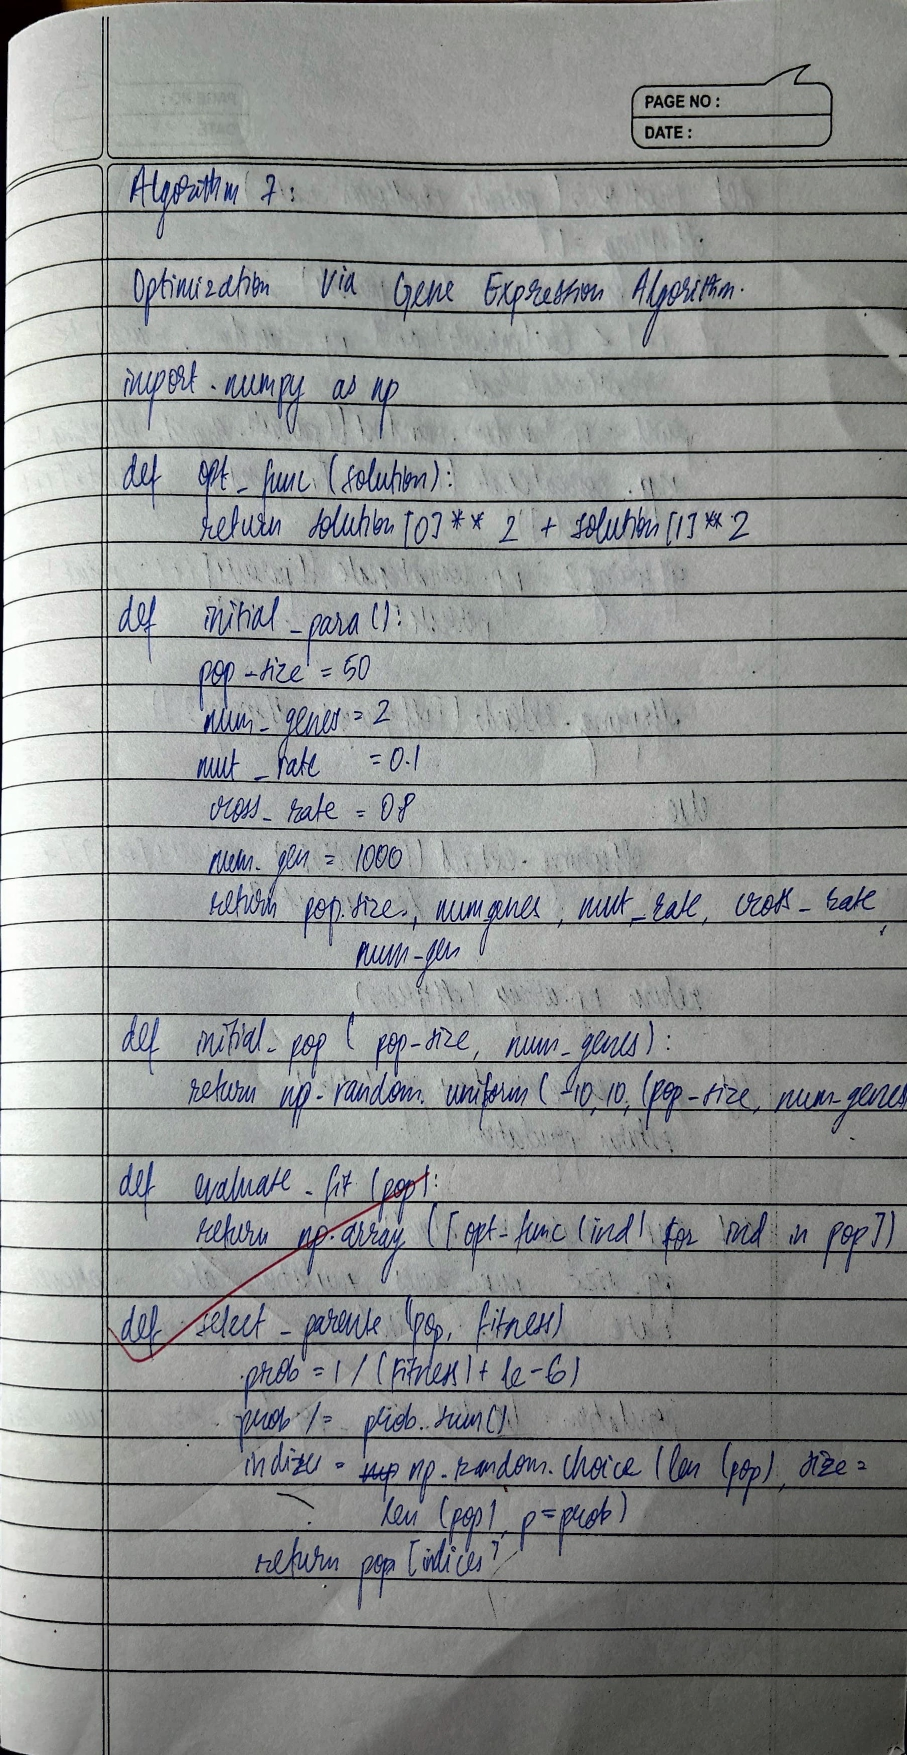 PAGE NO :
DATE :
Algorithm 7:
Optimization Via Gene Expression Algorithm.
import numpy as np
def opt_func (solution):
return solution [0]** 2 + solution [1]** 2
def initial_para ():
pop-size = 50
num_genes = 2
mut_rate = 0.1
cross_rate = 0.8
num.gen = 1000
return pop.size, numgenes, mut_rate, cross_rate,
num-gen
def initial_pop ( pop-size, num_genes):
return np.random.uniform (-10, 10, (pop-size, num-genes
def evaluate_fit (pop):
return np.array ([opt-func (ind) for ind in pop])
def select_parents (pop, fitness)
prob = 1 / (fitness) + 1e-6)
prob /= prob.sum()
indize = np.random.choice (len (pop), size =
len (pop), p=prob)
return pop [indices]